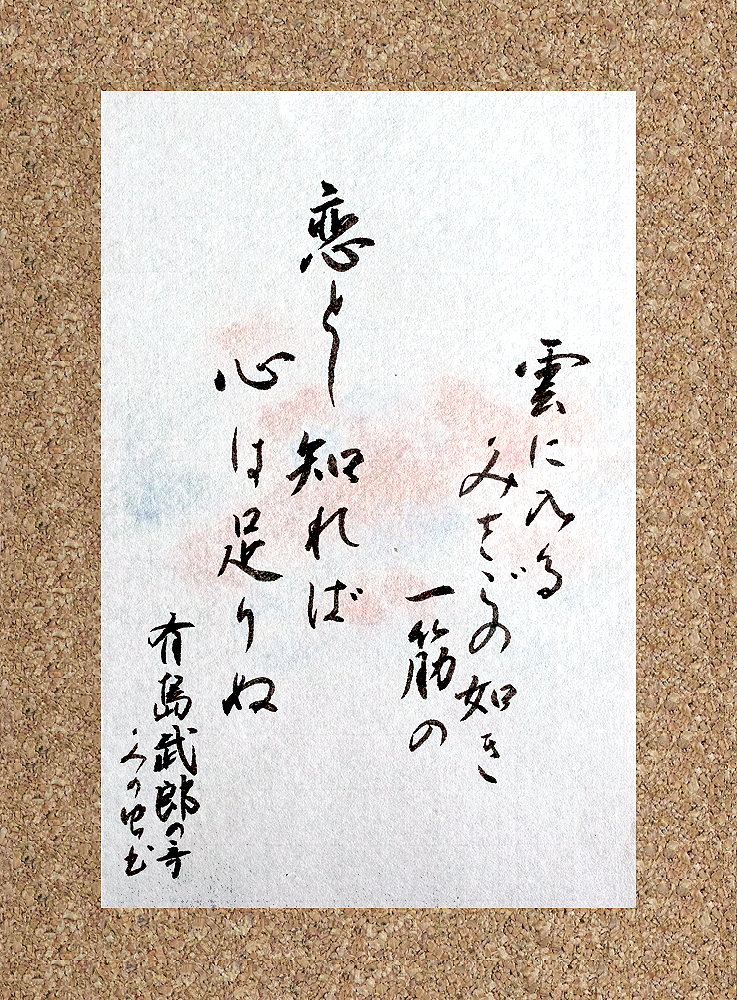 雲に入る
みさごの如き
一筋の
恋とし知れば
心は足りぬ
有島武郎の哥
みの虫書